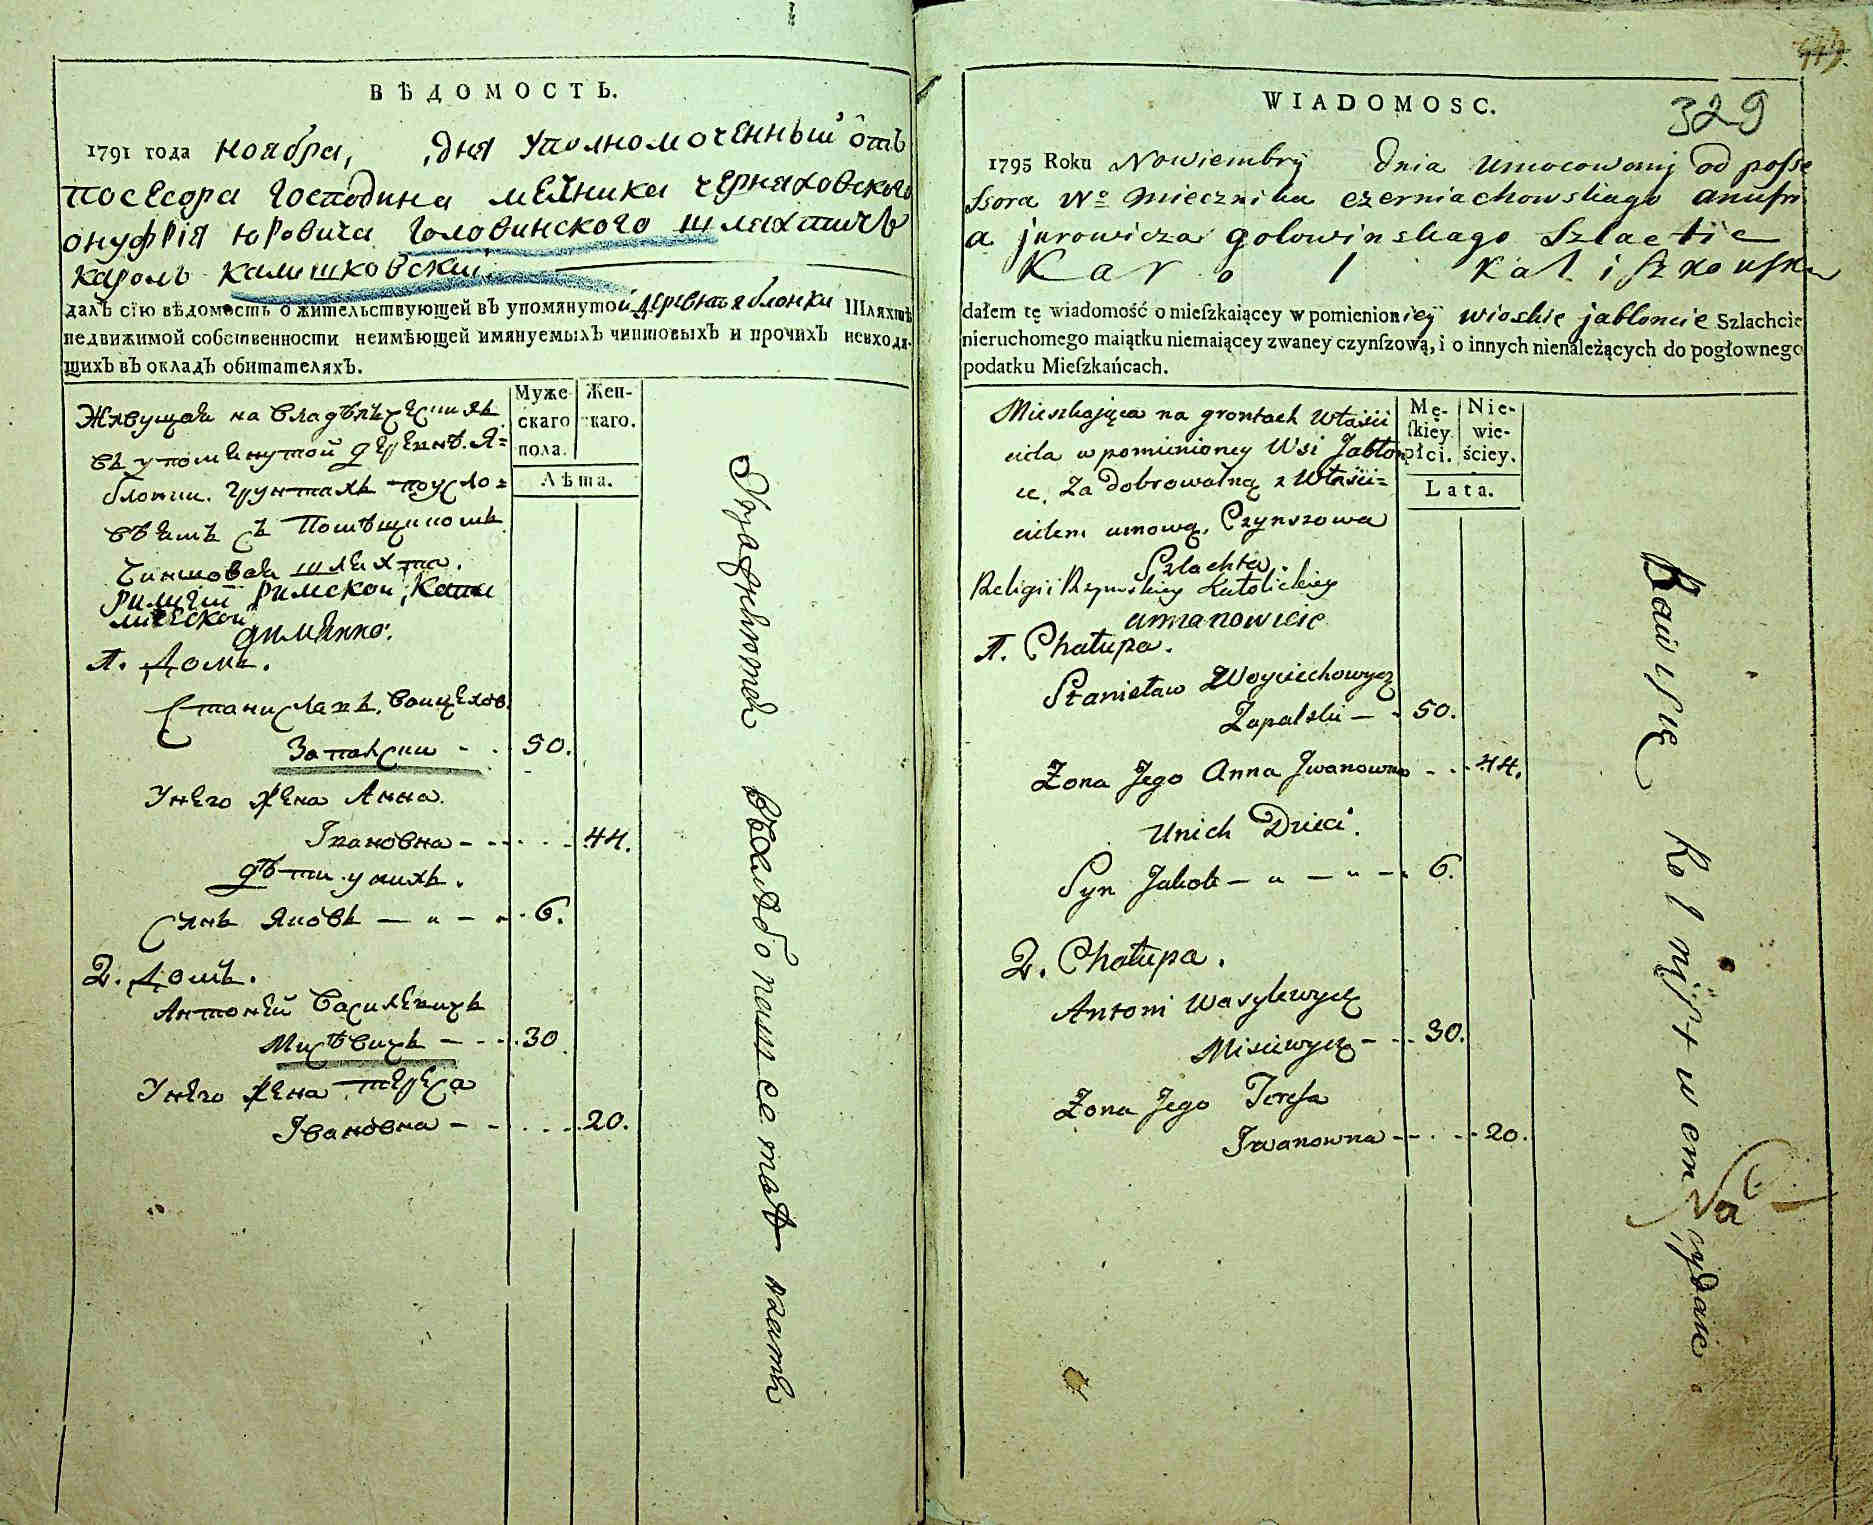 ВѢДОМОСТЬ.
1791 года ноября, дня уполномоченный отъ
посесора господина мечника черняховского
онуфрія юровича головинского шляхтичъ
кароль калишковский
далъ сію вѣдомость о жительствующей въ упомянутой деревнѣ яблонки Шляхтѣ
недвижимой собственности неимѣющей имянуемыхъ чиншовыхъ и прочихъ невходя-
щихъ въ окладъ обитателяхъ.
Муже- Жен-
скаго скаго.
пола.
Лѣта.
Живущая на владѣльческихъ
въ упомянутой деревнѣ Я=
блонки грунтахъ поусло=
віямъ съ Помѣщикомъ
Чиншовая шляхта.
Римской Кати
лической
аимянно:
1. Домъ.
Станиславъ, Войцехов.
Запалски - - 50.
Унего жена Анна
Ивановна - - - - 44.
дѣти у нихъ.
Сынъ Яковъ — „ — „ 6.
2. Домъ.
Антоній Василевичъ
Мисѣвичъ — - - 30
Унего жена тереса
Ивановна - - - - 20.
WIADOMOSC.
449.
329
1795 Roku Nowiembry dnia umocowony od posse
ssora Wo miecznika czerniachowskiago anufri
a jurowicza golowinskago Szlactic
Karol Kaliszkowski
dałem tę wiadomość o mieſzkaiącey w pomienioniey wioskie jabloncie Szlachcie
nieruchomego maiątku niemaiącey zwaney czynſzową, i o innych nienależących do pogłownego
podatku Mieſzkańcach.
Mę- Nie-
ſkiéy wie-
płci. ściey.
Lata.
Mieszkająca na grontach Właści
ciela w pomienioney Wsi Jabłon
ce, Za dobrowolną z Właści=
cielem umową, Czynszowa
Szlachta.
Religii Rzymskiey Katolickiey
amianowicie
1. Chałupa.
Stanisław Woyciechowycz
Zapalski — - 50.
Żona Jego Anna Jwanowna - - - 44.
Unich Dzieci.
Syn Jakob — „ — „ — 6.
2. Chałupa.
Antoni Wasylewycz
Misiewycz - - - 30.
Żona Jego Teresa
Jwanowna - - - - 20.